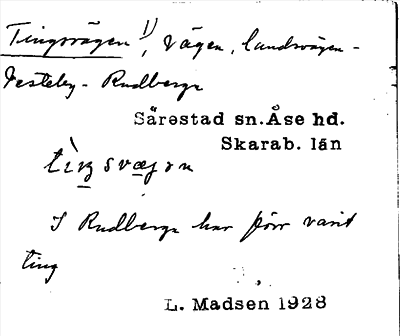 Tingsvägen 1), vägen, landsvägen-
Vesteby - Rudberga
Särestad sn. Åse hd.
Skarab. län
I Rudberga har förr varit
ting
L. Madsen 1928